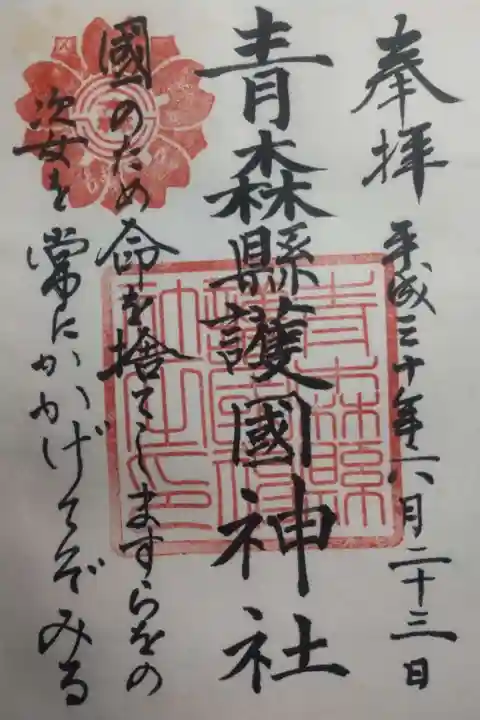 奉拝
平成三十年六月二十三日
青森縣護國神社
國のため命を捨てしますらをの
姿を常にかかげてぞみる
青森縣
護國神
社之印